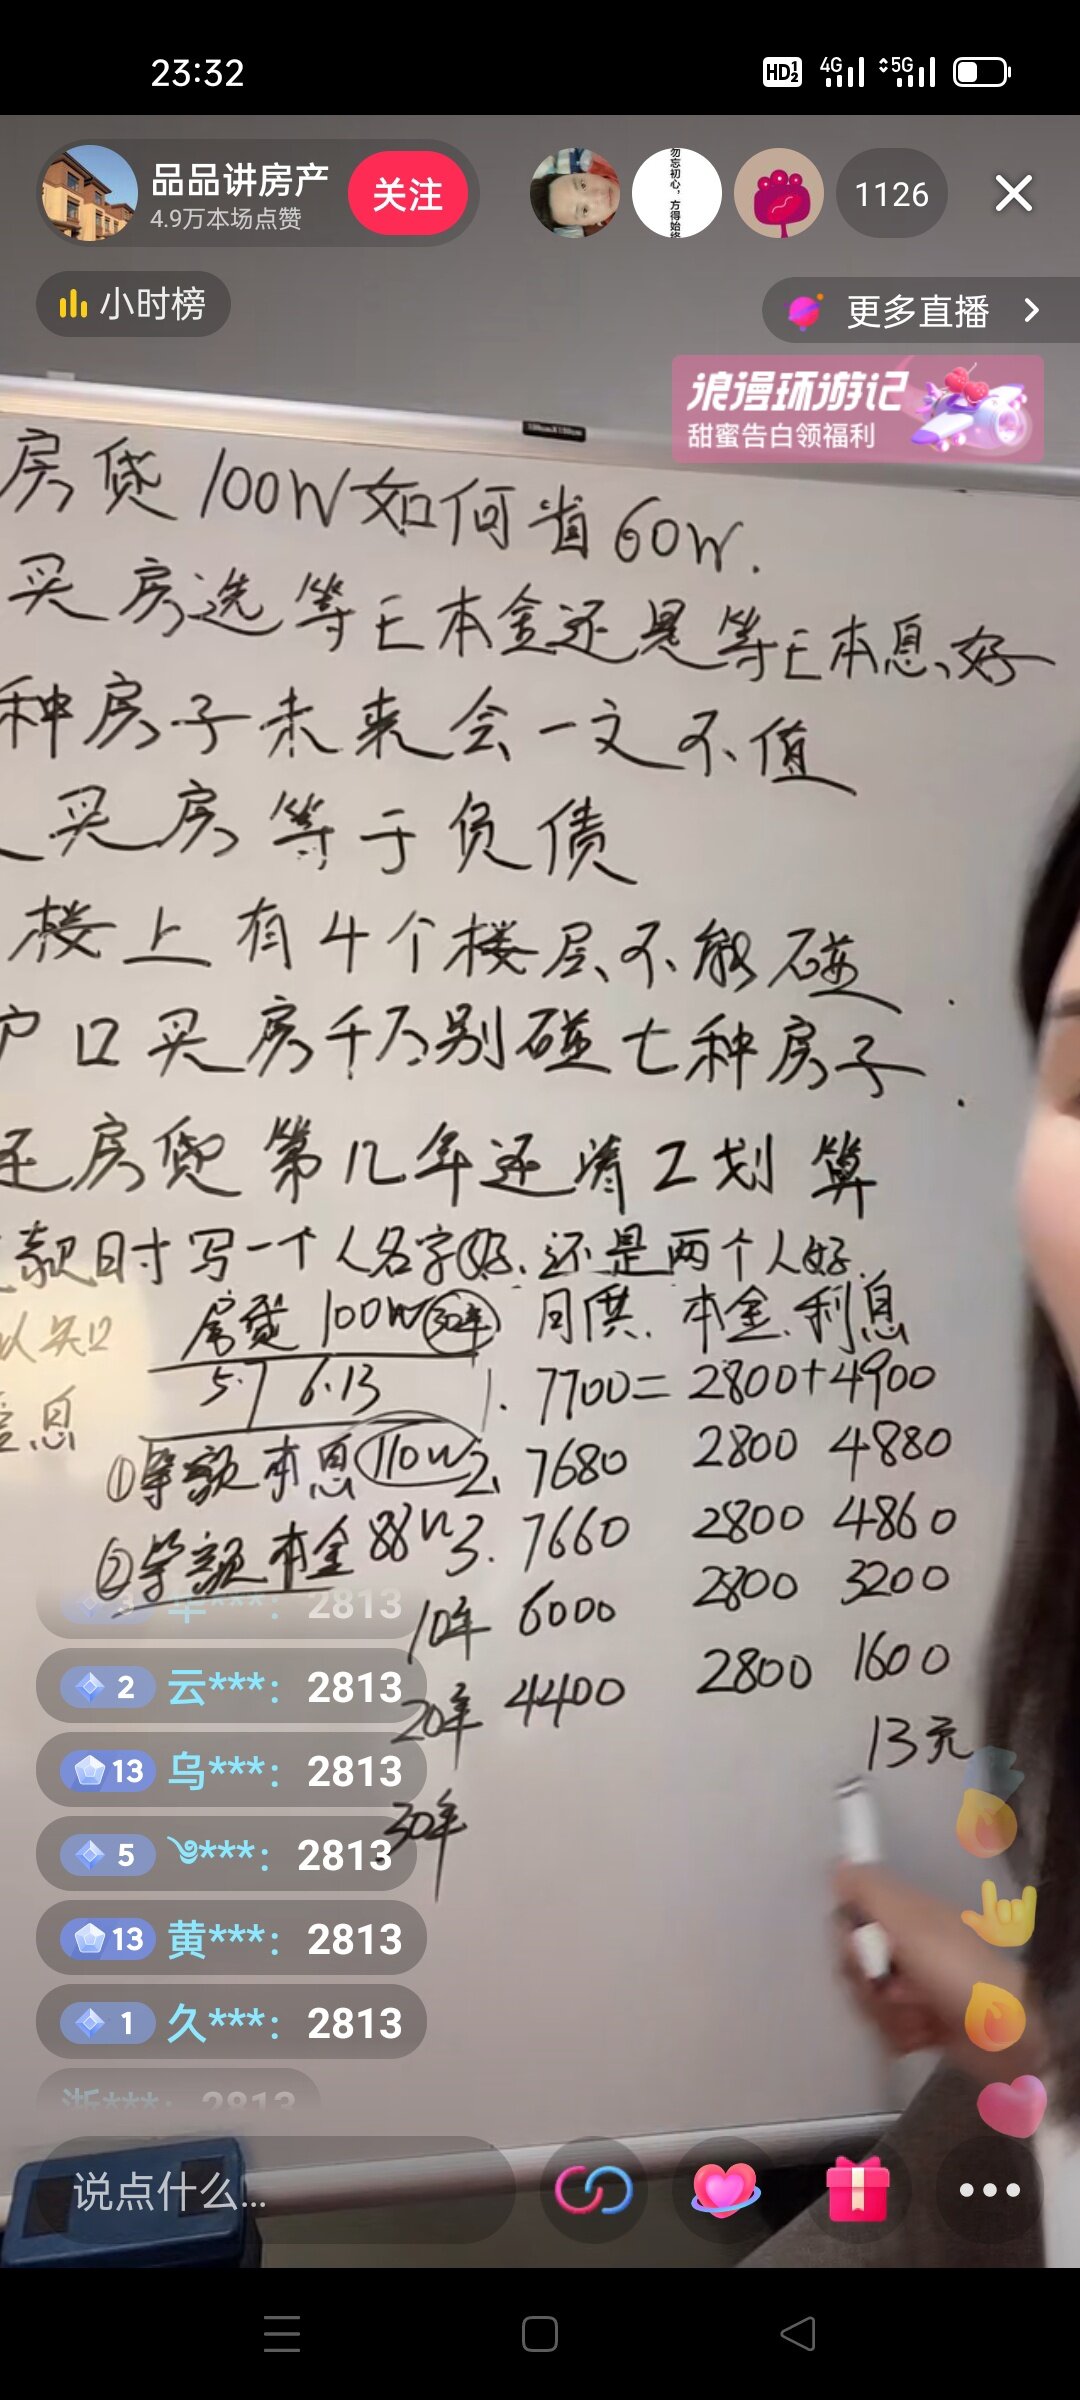 23:32
HD 1 2 4G 5G
品品讲房产 关注
4.9万本场点赞
勿忘初心，方得始终
1126
小时榜
更多直播
浪漫环游记
甜蜜告白领福利
房贷100W如何省60W.
买房选等E本金还是等E本息好
种房子未来会一文不值
买房等于负债
楼上有4个楼层不能碰
户口买房千万别碰七种房子
还房贷第几年还清工划算
款日寸写一个人名字好.还是两个人好
房贷100W 30年 月供. 本金. 利息
5.7 6.13 1. 7700= 2800+4900
息
①等额本息 110W 2. 7680 2800 4880
②等额本金 88W 3. 7660 2800 4860
10年 6000 2800 3200
20年 4400 2800 1600
13元
30年
3 华***： 2813
2 云***： 2813
13 乌***： 2813
5 ***： 2813
13 黄***： 2813
1 久***： 2813
浙***： 2813
说点什么...